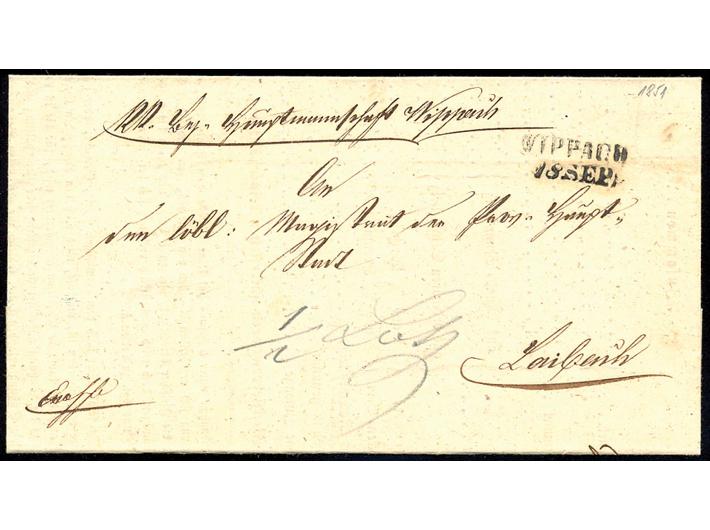 1851
KK. Bez. Hauptmannschaft Wippach
WIPPACH
18 SEP.
An
den löbl: Magistrat der Prov. Haupt-
Stadt
1/2 Loth
Laibach